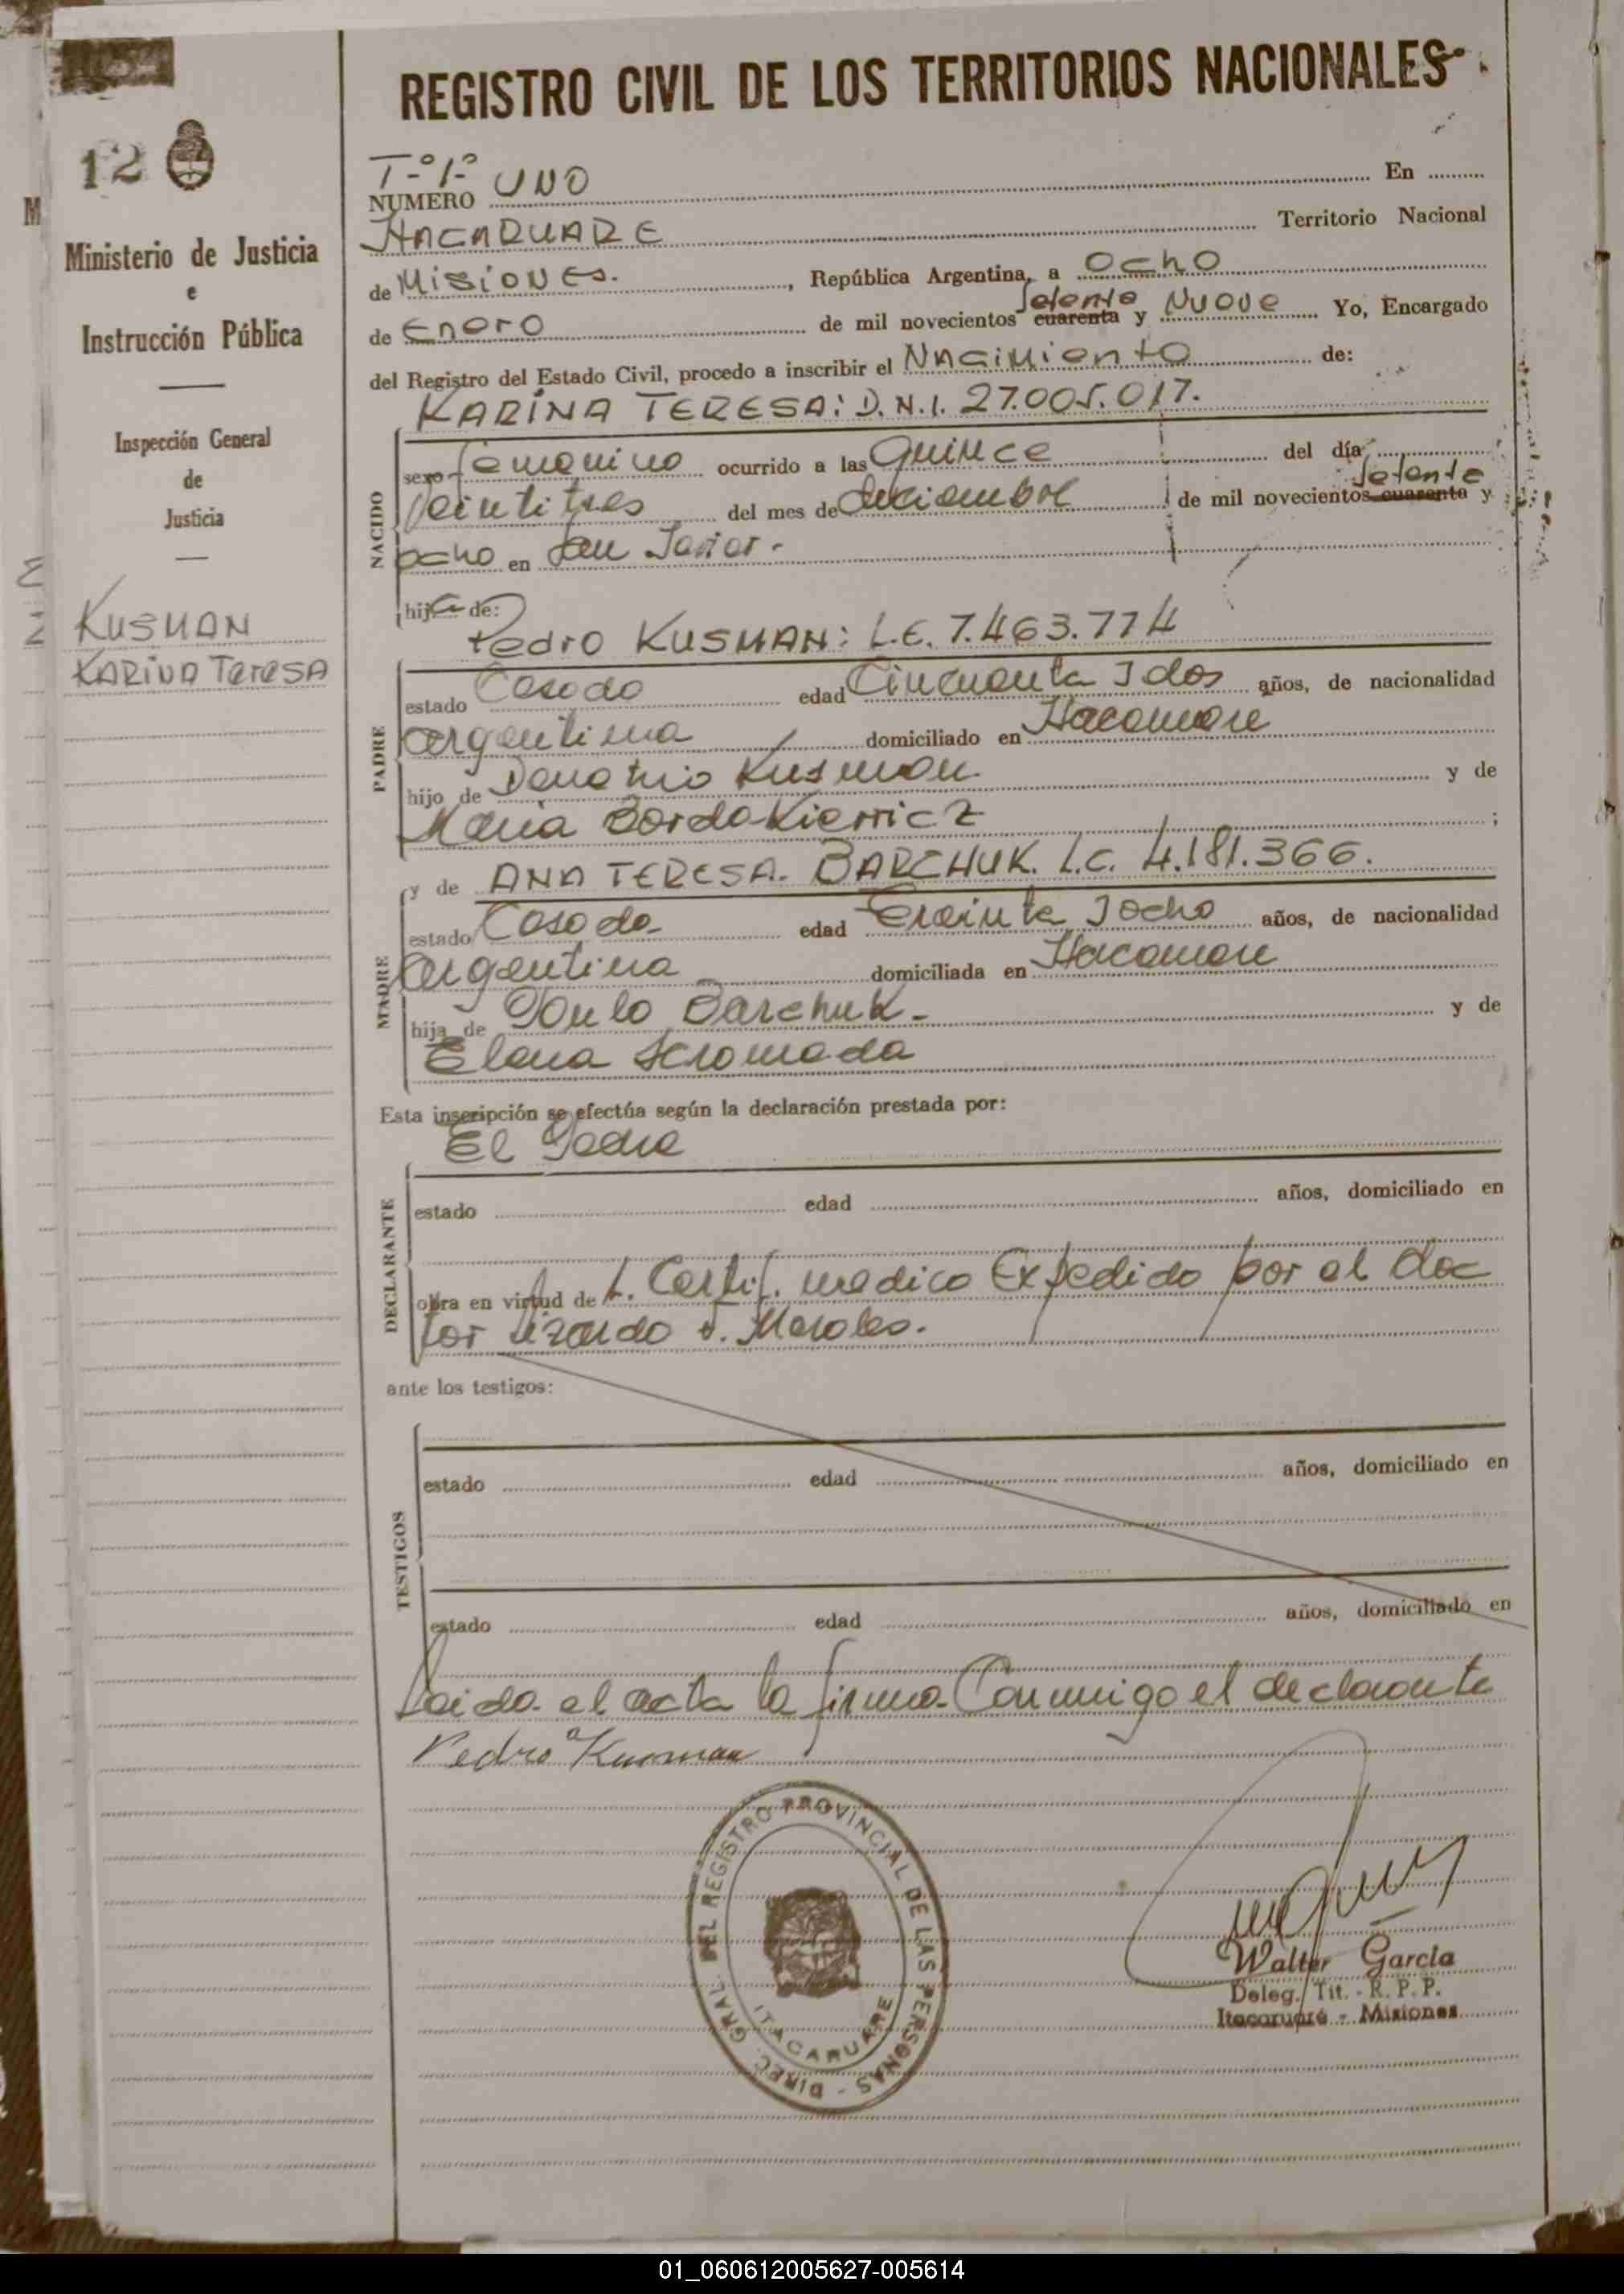 REGISTRO CIVIL DE LOS TERRITORIOS NACIONALES
12
Ministerio de Justicia
e
Instrucción Pública
Inspección General
de
Justicia
KUSMAN
KARINA TERESA
T-º 1-º
NUMERO UNO En
ITACARUARE Territorio Nacional
de MISIONES. , República Argentina, a OCHO
de Enero de mil novecientos cuarenta setenta y NUEVE Yo, Encargado
del Registro del Estado Civil, procedo a inscribir el NACIMIENTO de:
KARINA TERESA: D.N.I. 27.005.017.
NACIDO
sexo femenino ocurrido a las quince del día
veintitres del mes de diciembre de mil novecientos cuarenta setenta y
ocho en San Javier.-
hija de:
Pedro KUSMAN: L.E. 7.463.774
PADRE
estado Casado edad Cincuenta y dos años, de nacionalidad
argentina domiciliado en
hijo de Demetrio Kusman y de
Maria ;
y de ANA TERESA. BARCHUK. L.C. 4.181.366.
MADRE
estado Casada edad Treinta y ocho años, de nacionalidad
argentina domiciliada en
hija de Pablo Barchuk.- y de
Elena
Esta inscripción se efectúa según la declaración prestada por:
El Padre
DECLARANTE
estado edad años, domiciliado en
obra en virtud de Certif. medico Expedido por el doc
tor Morales.
ante los testigos:
TESTIGOS
estado edad años, domiciliado en
estado edad años, domiciliado en
Leida el acta la firma Conmigo el declarante
Pedro Kusman
DIREC. GRAL. DEL REGISTRO PROVINCIAL DE LAS PERSONAS -
ITACARUARE
Walter García
Deleg. Tit. - R. P. P.
Itacaruaré - Misiones
01_060612005627-005614